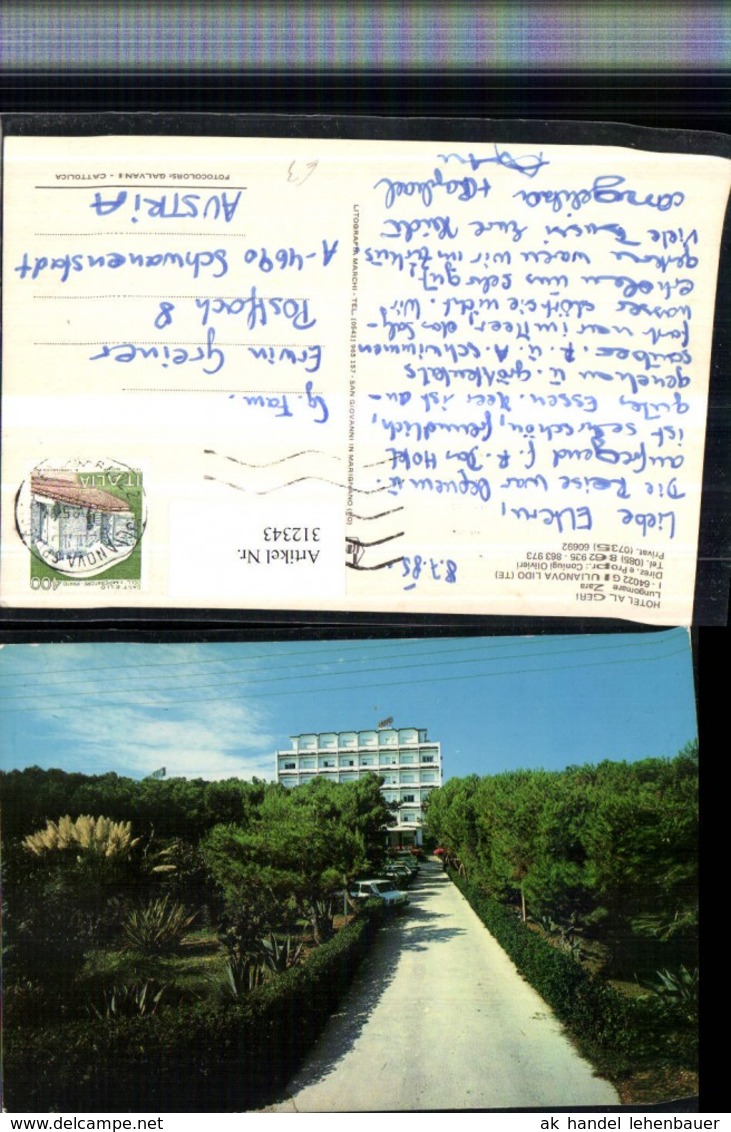 HOTEL ALGERI
Lungomare Zara
I - 64022 GIULIANOVA LIDO (TE)
Direz. e Propr.: Coniugi Olivieri
Tel. (085) 862 935 - 863 973
Privat. (0735) 60692
8.7.85
Liebe Eltern,
Die Reise war bequem u.
aufregend f. R. Das Hotel
ist sehr schön, freundlich,
gutes Essen. Meer ist an-
genehm u. größtenteils
sauber. R. u. A. schwimmen
fort war im Meer, das Salz-
wasser stört sie nicht. Wir
erholen uns sehr gut,
gestern waren wir im Zirkus
Viele Bussi Eure Heidi
Angelika + Raphael
LITOGRAFIA MARCHI - TEL. (0541) 955 157 - SAN GIOVANNI IN MARIGNANO (FO)
ITALIA
400
Artikel Nr.
312343
Fg. Fam.
Erwin Greiner
Postfach 8
A-4690 Schwanenstadt
AUSTRIA
FOTOCOLORS: GALVANI - CATTOLICA
ak handel lehenbauer